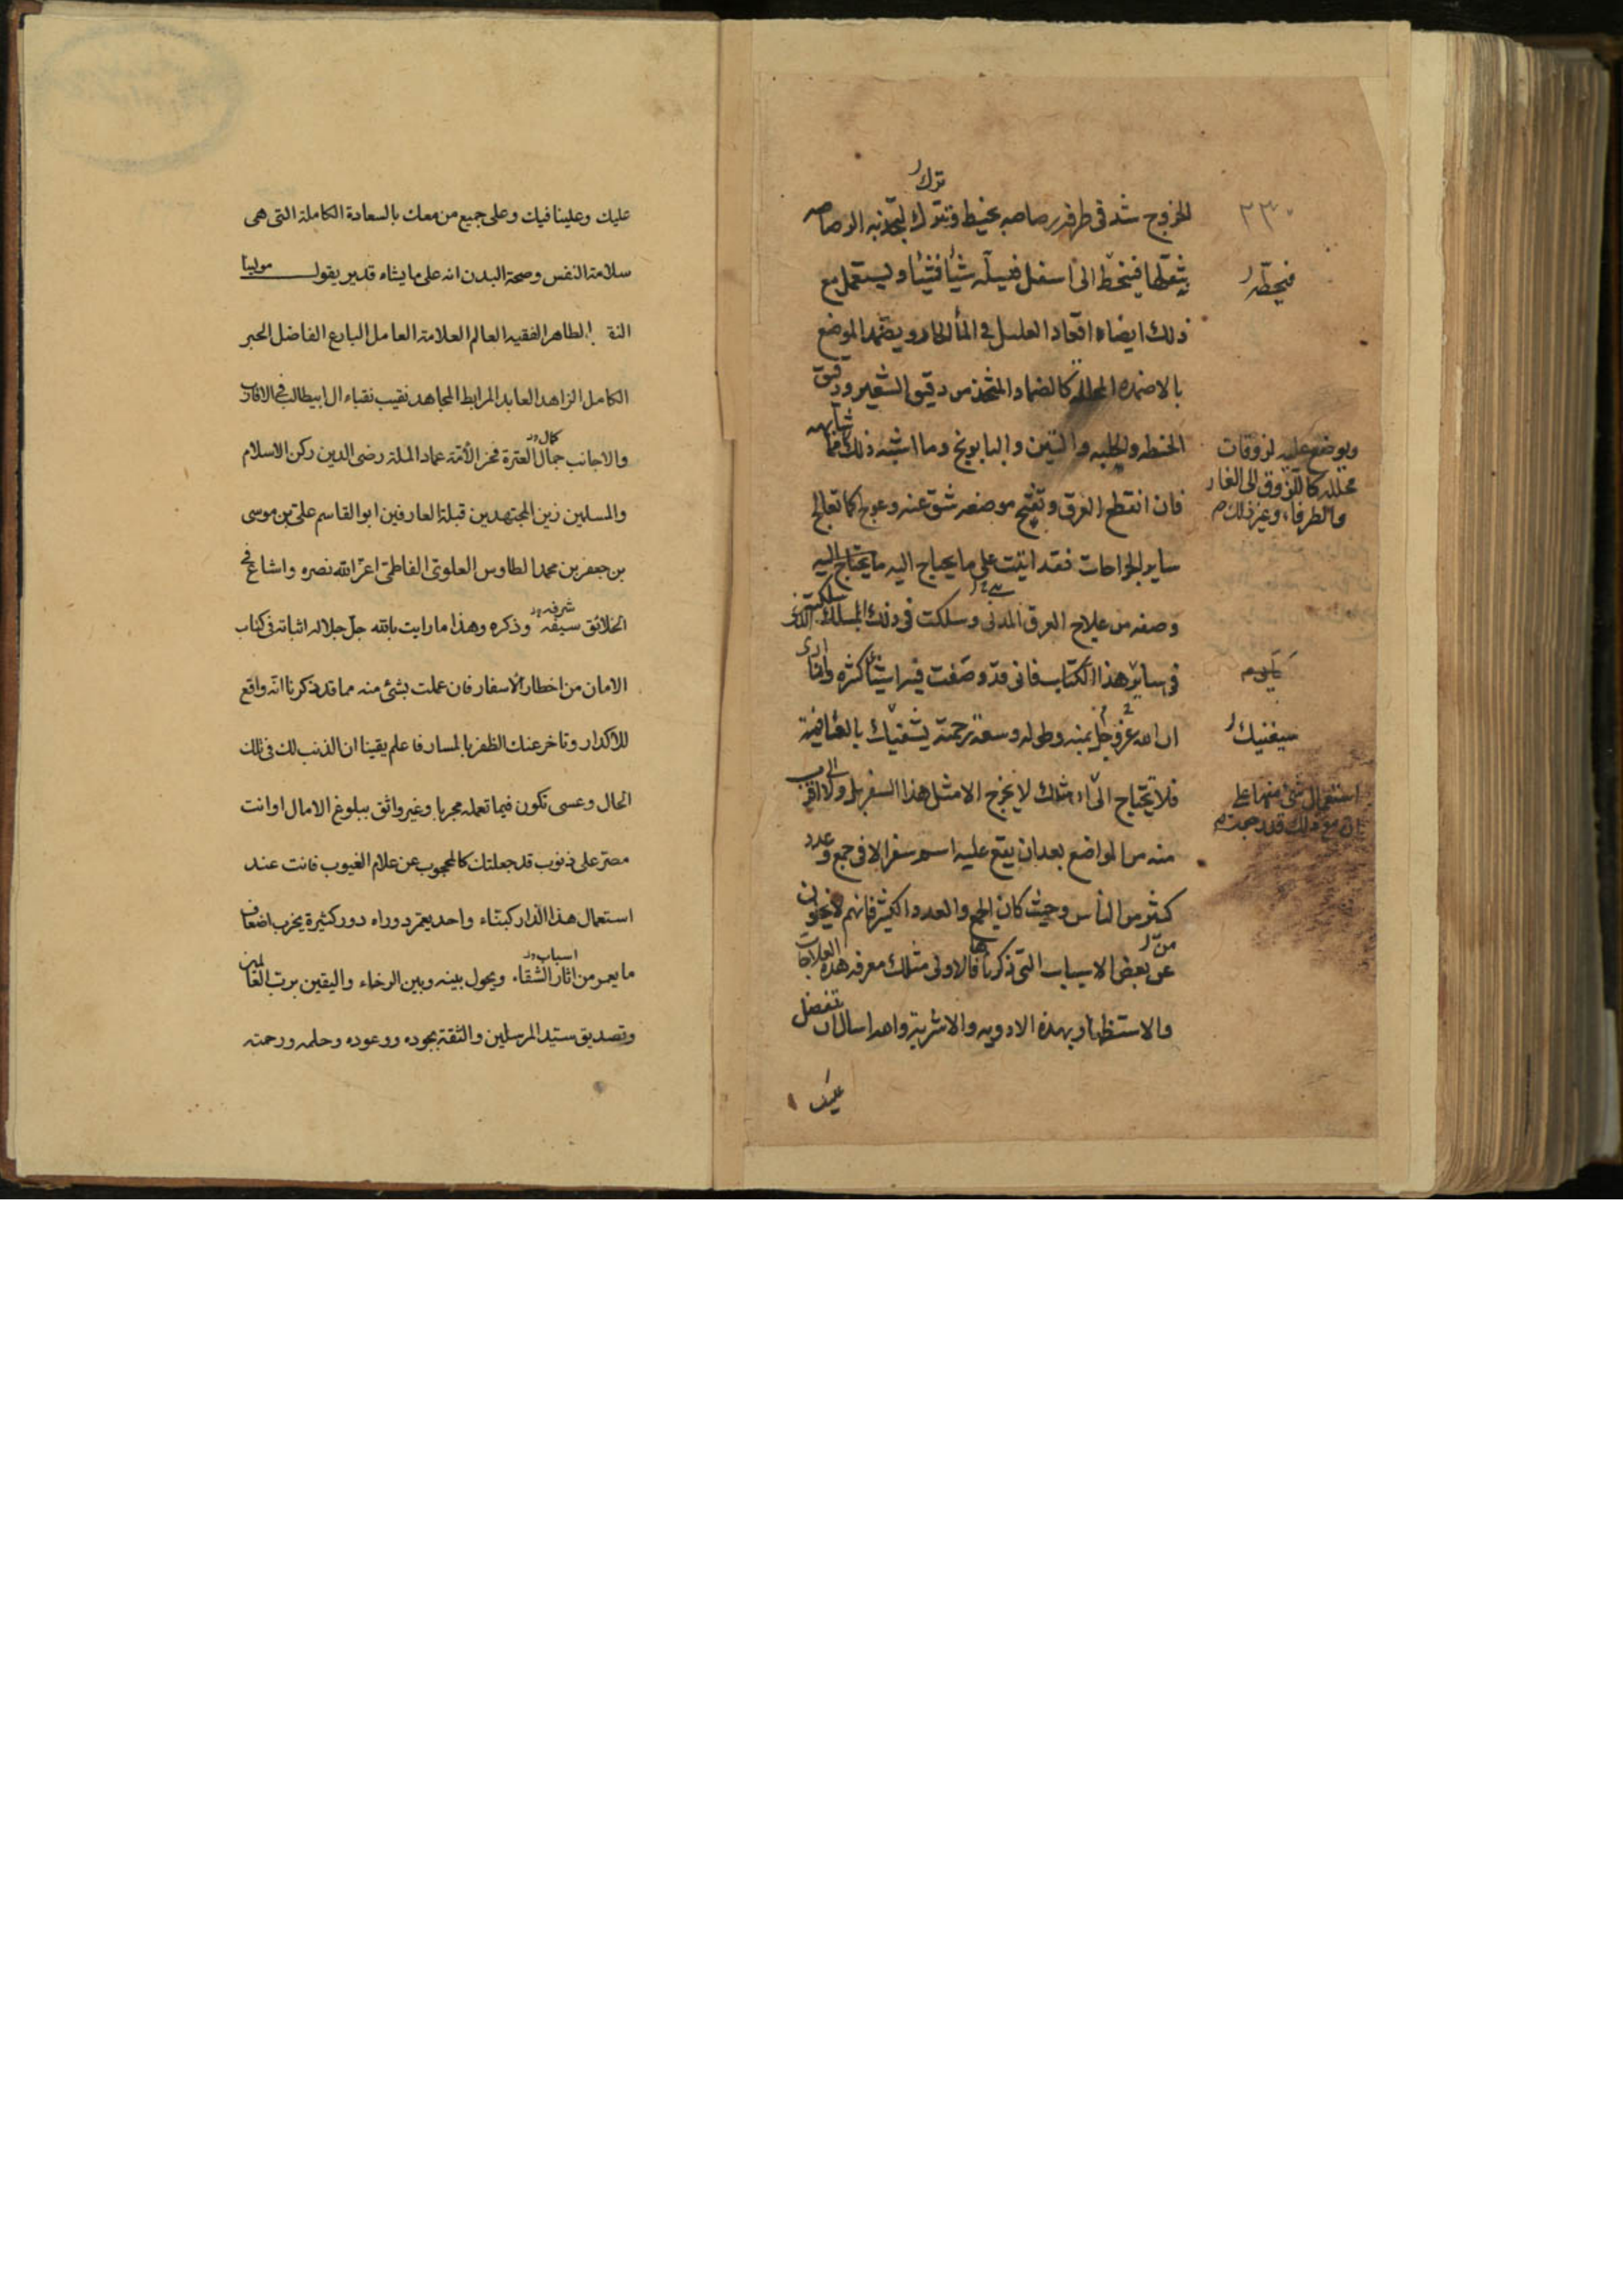 ترك
الخروج شد فى طرفه رصاصه بخيط وتترك لتجذبه الرصاصه
بثقلها فينحط الى اسفل فيسله شيئا فشيئا ويستعمل مع
فيحطه
ذلك ايضا اقعاد العليل فى الماء الحار ويضمد الموضع
بالاضمده المحلله كالضماد المتخذ من دقيق الشعير ودقيق
الحنطه والحلبه والتين والبابونج وما اشبه ذلك
ويوضع عليه لزوقات
محلله كاللزوق الى الغار
والطرفاء وغير ذلك
فان انقطع العرق وتقيح موضعه شق عنه وعولج كما تعالج
ساير الجراحات فقد اتيت على ما يحتاج اليه ما يحتاج اليه
وصفه من علاج العرق المدنى وسلكت فى ذلك المسلك الذى
سلكته
فى ساير هذا الكتاب فانى قد وصفت فيه اشياء كثيره وانا
ارى
ان الله عز وجل بمنه وطوله وسعة رحمته يشفيك بالعافية
سيغنيك
فلا تحتاج الى اذ مثلك لا يخرج الا مثل هذا السفر بل ولا الى اقرب
استعمال شئ منها على
ان مع ذلك قد رجمت
منه من المواضع بعد ان يقع عليه اسم سفر الا فى جمع وعدد
كثير من الناس وحيث كان الجمع والعدد الكثير فانهم لا يخلون
من
عن بعض الاسباب التى ذكرناها فالاولى مثلك معرفه هذه العلاجات
والاستظهار بهذه الادويه والاشربة والله اسال ان يتفضل
عليك
عليك وعلينا فيك وعلى جميع من معك بالسعادة الكاملة التى هى
سلامة النفس وصحة البدن انه على ما يشاء قدير يقول مولينا
الطاهر الفقيه العالم العلامة العامل البارع الفاضل الحبر
الكامل الزاهد العابد المرابط المجاهد نقيب نقباء ال ابيطالب فى الاقارب
والاجانب جمال العترة فخر الأئمة عماد الملة رضى الدين ركن الاسلام
كمال
والمسلمين زين المجتهدين قبلة العارفين ابو القاسم على بن موسى
بن جعفر بن محمد الطاوس العلوى الفاطمى اعز الله نصره واشاع فى
الخلائق سيفه وذكره وهذا ما رايت بالله جل جلاله اثباته فى كتاب
شرفه
الامان من اخطار الاسفار فان عملت بشئ منه مما قد ذكرنا انه واقع
للاكدار وتاخر عنك الظفر بالمسار فاعلم يقينا ان الذنب لك فى تلك
الحال وعسى تكون فيما تعمله مجربا وغير واثق ببلوغ الامال او انت
مصر على ذنوب قد جعلتك كالمحجوب عن علام الغيوب فانت عند
استعمال هذا الدار كبناء واحد يعمر دوراه دور كثيرة يخرب اضعاف
ما يعمر من اثار الشقاء ويحول بينه وبين الرخاء واليقين برب العالمين
اسباب
وتصديق سيد المرسلين والثقة بجوده ووعوده وحلمه ورحمته